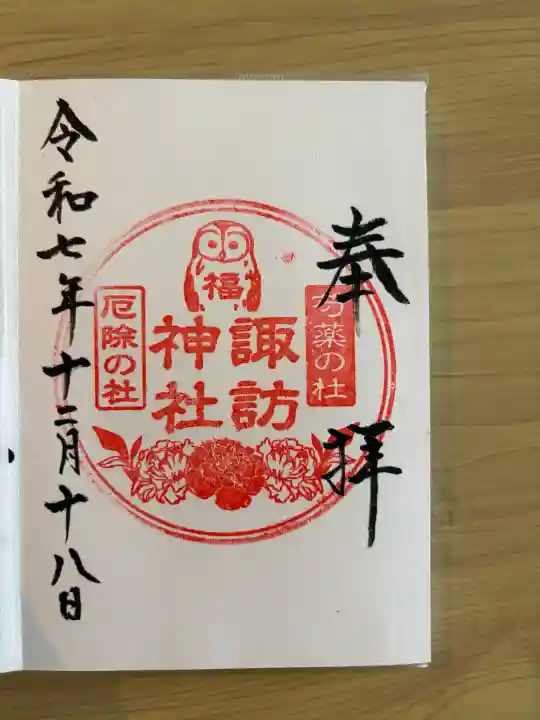 奉拝
芍薬の杜
福
諏訪
神社
厄除の社
令和七年十二月十八日